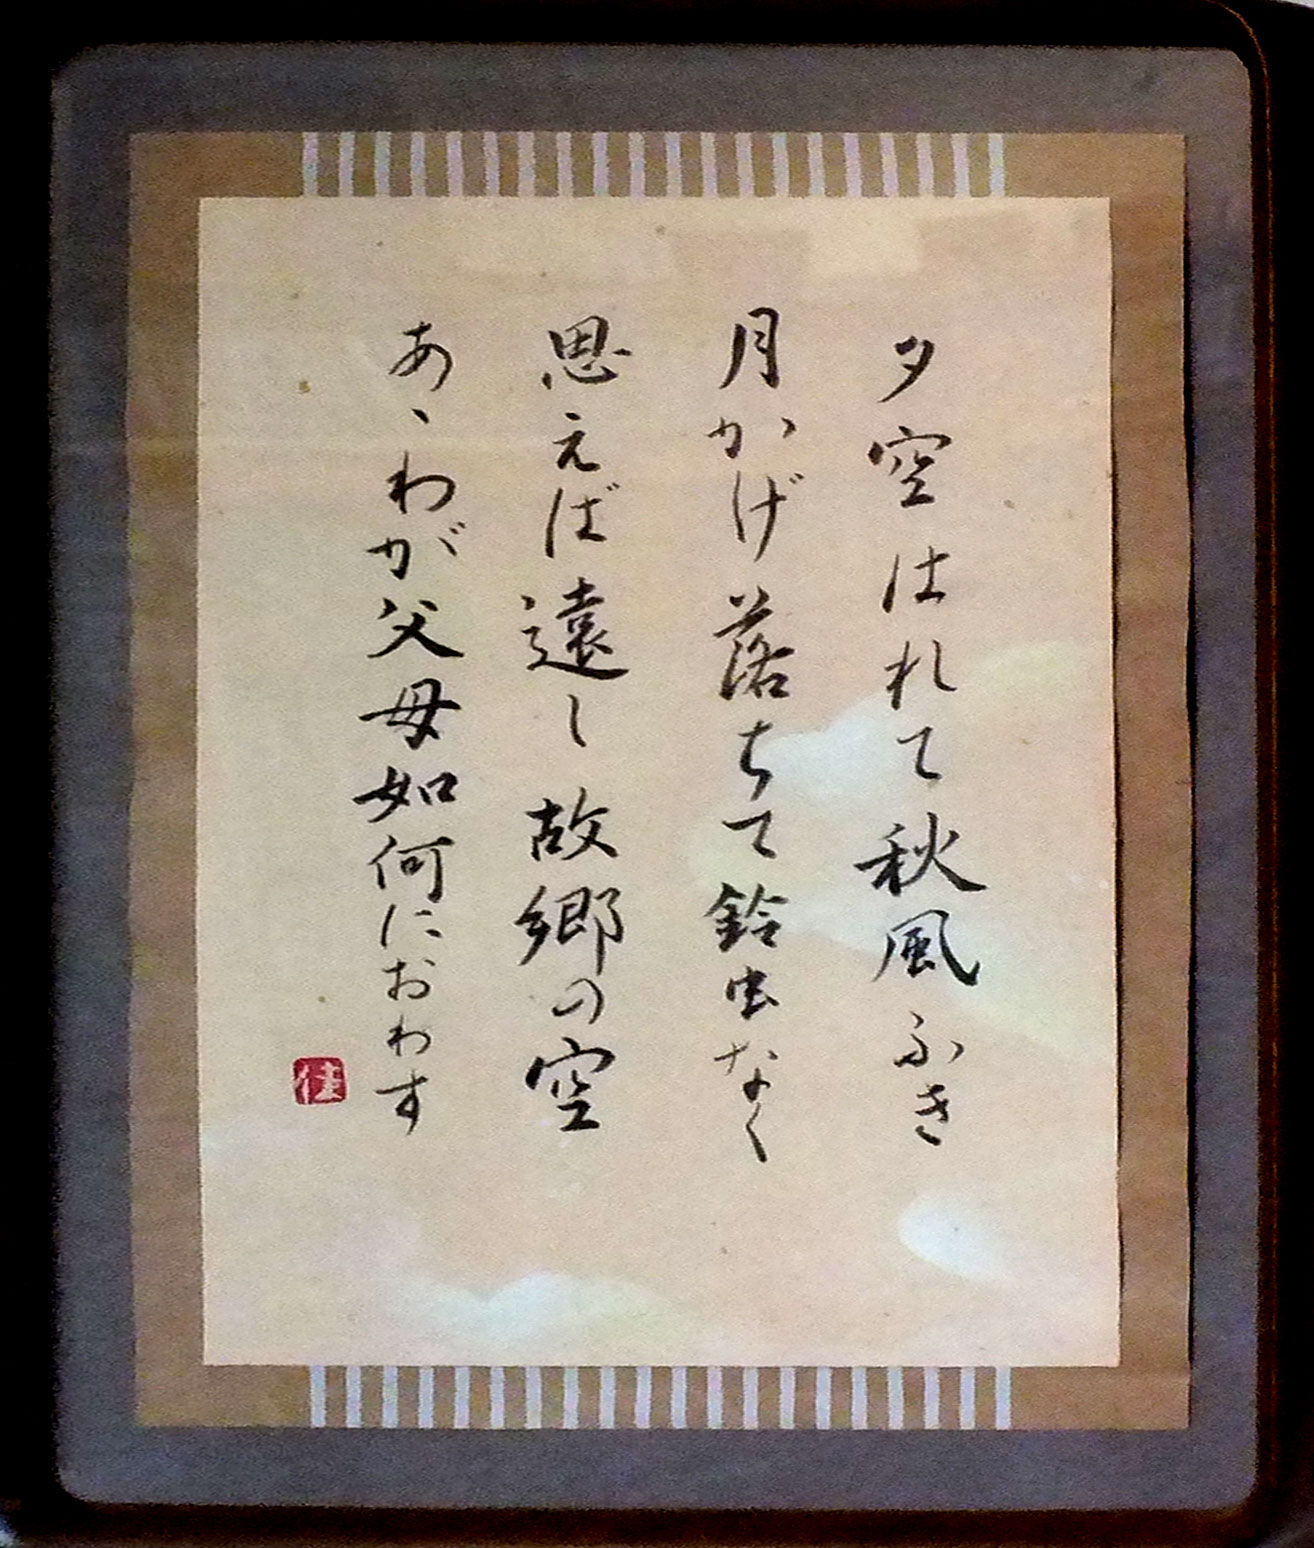 夕空はれて秋風ふき
月かげ落ちて鈴虫なく
思えば遠し故郷の空
あゝわが父母如何におわす
佳